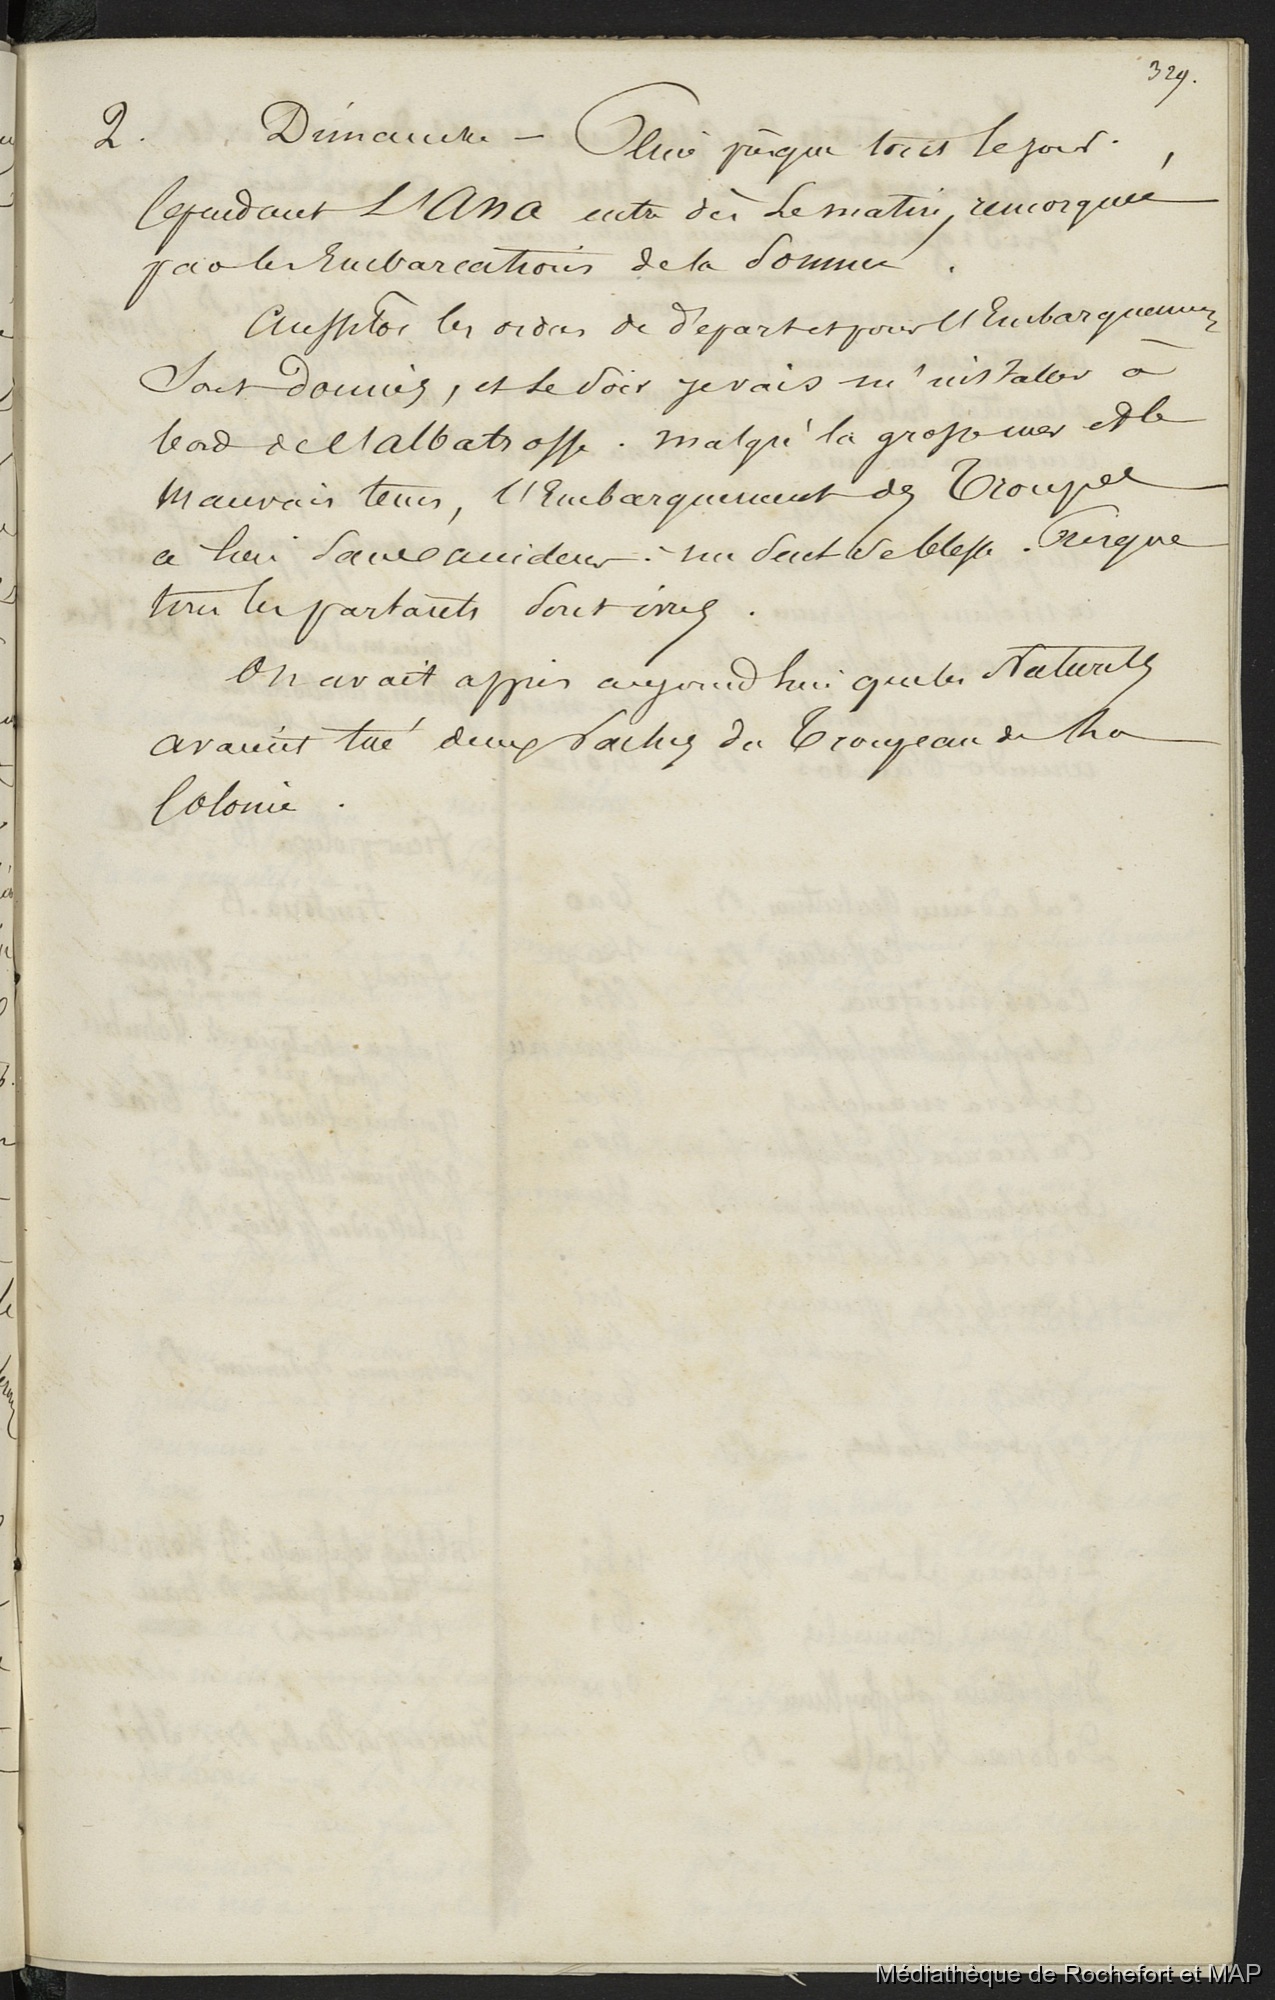 329.
2. Dimanche – Pluie presque tout le jour.
Cependant L'Ana entre dès le matin, remorquée
par les Embarcations de la Somme.
Aussitôt les ordres de départ et pour l'Embarquement
sont donnés, et le soir je vais m'installer à
bord de l'albatrosse. Malgré la grosse mer et le
mauvais tems, l'Embarquement des Troupes
a lieu sans accident : un seul se blesse. Presque
tous les partants sont ivres.
On avait appris aujourd'hui que les Naturels
avaient tué deux vaches du Troupeau de la
Colonie.
Médiathèque de Rochefort et MAP